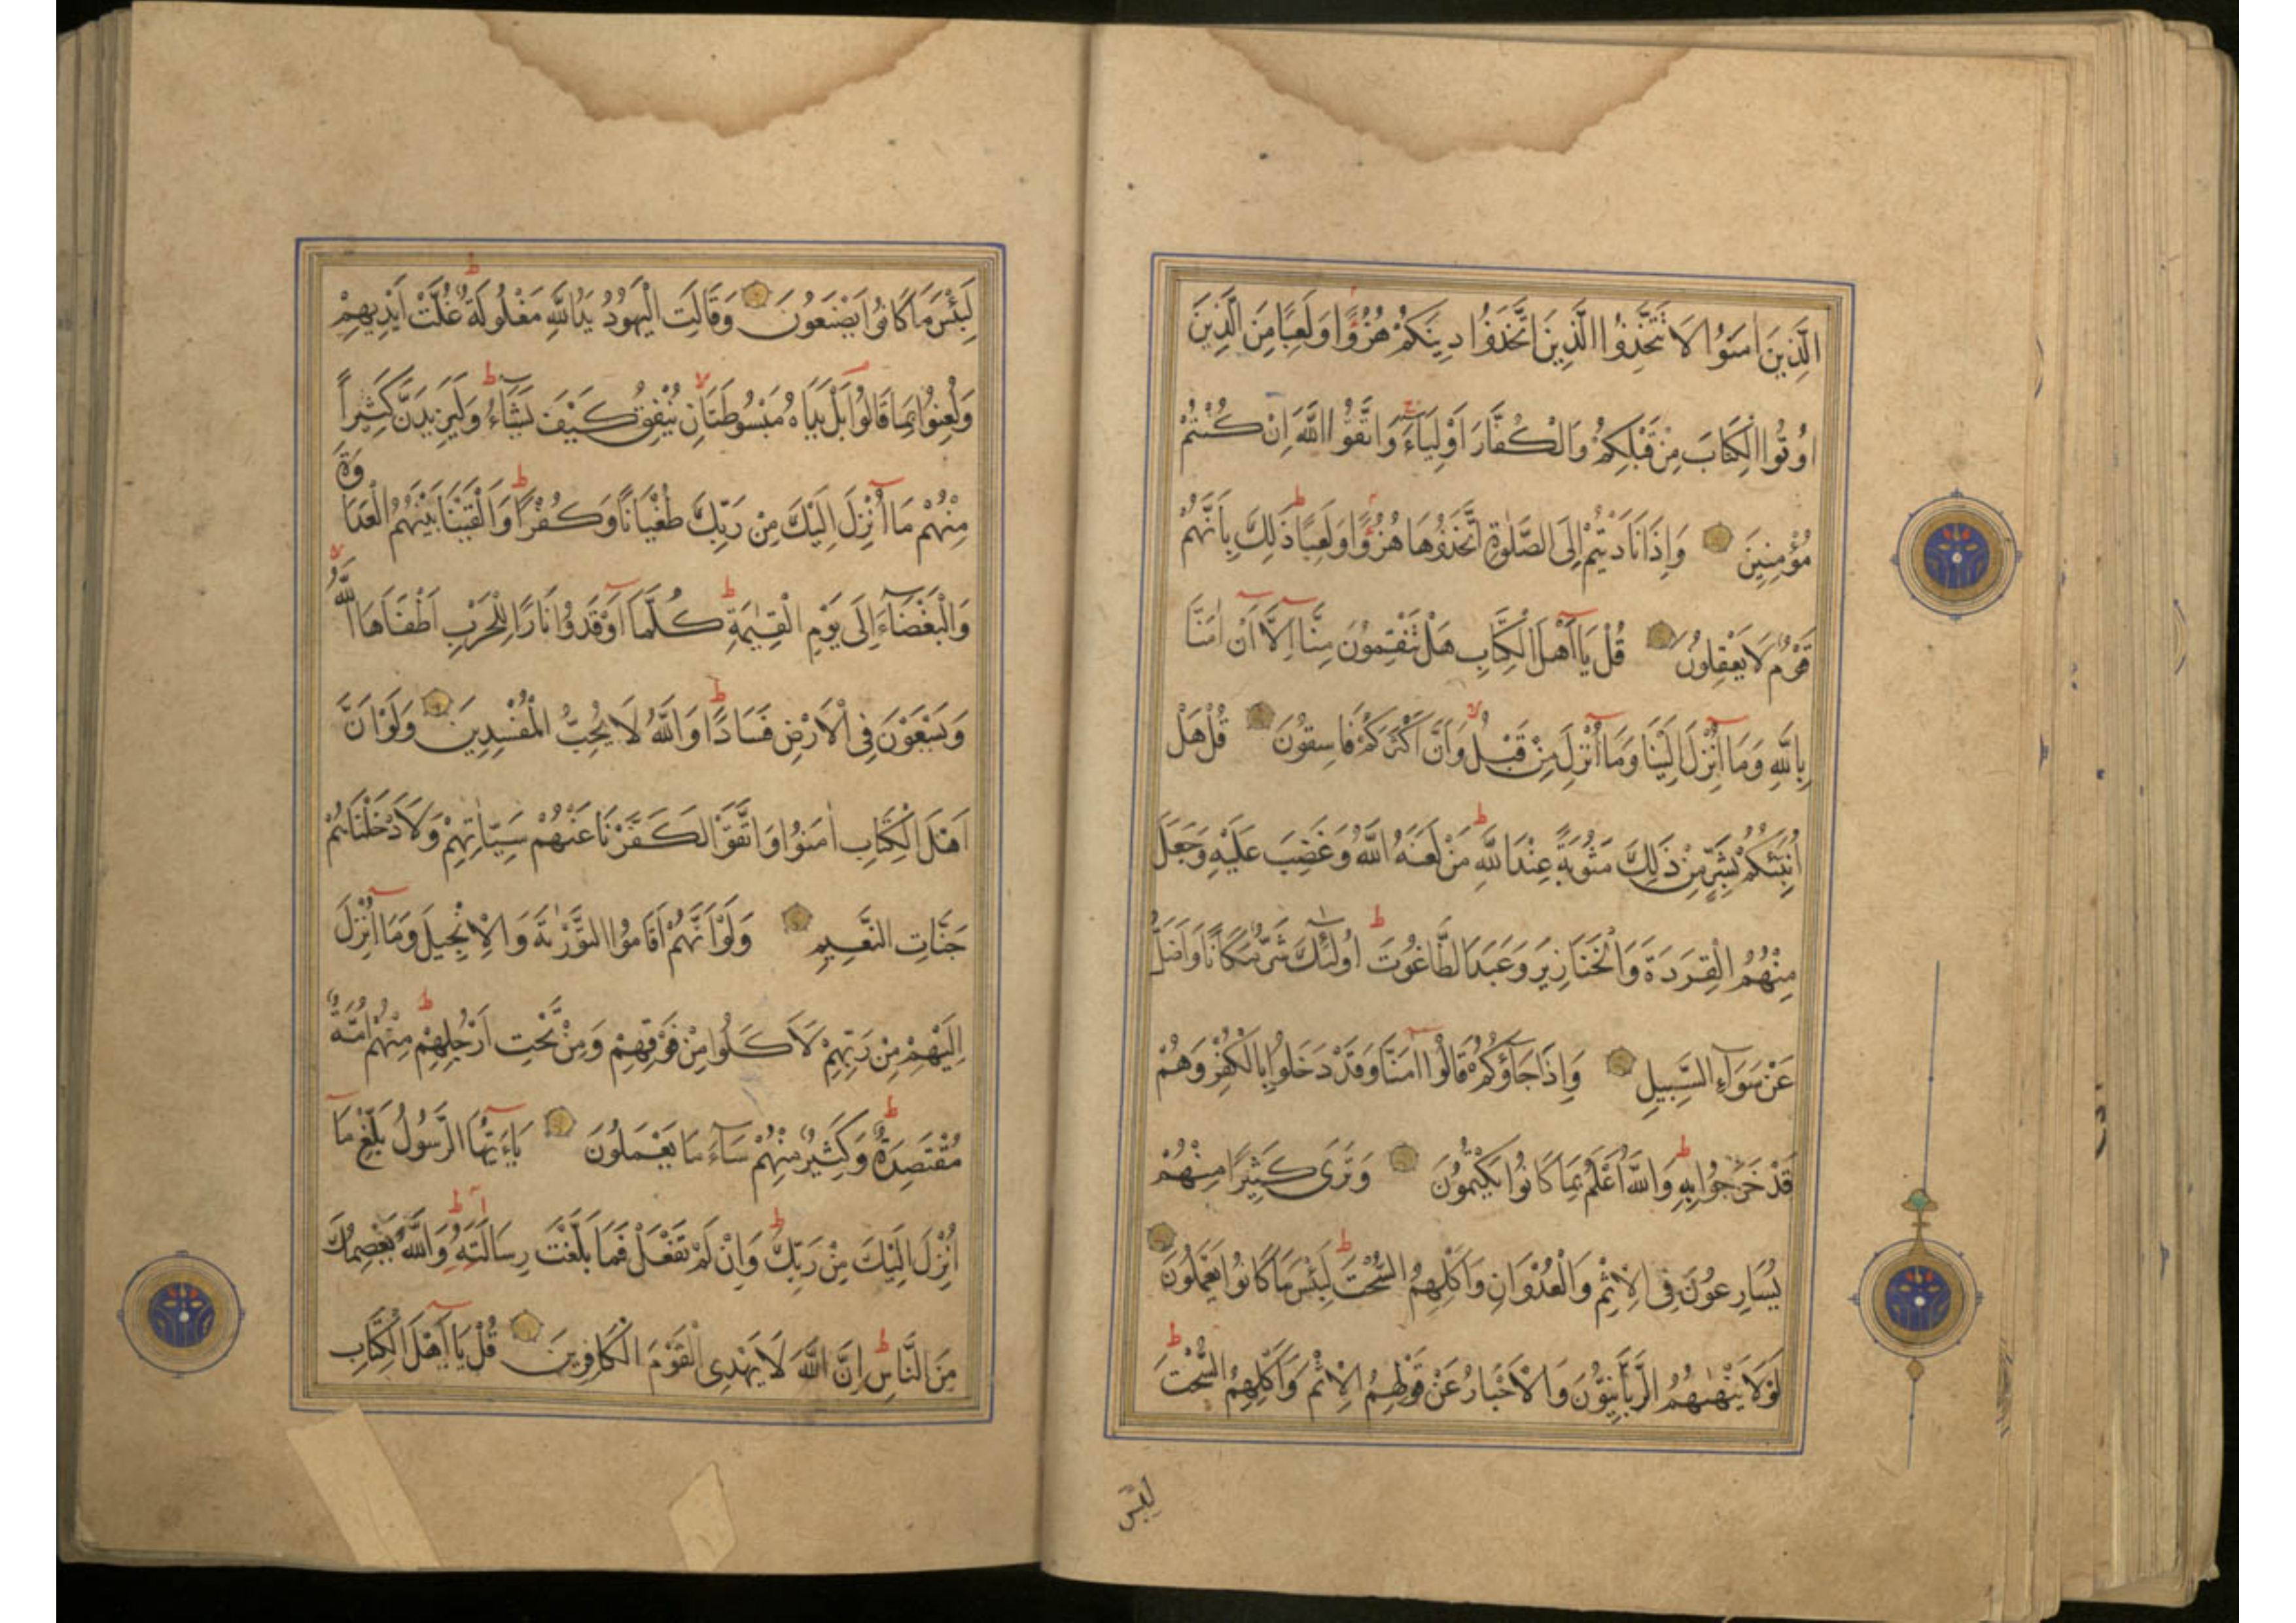 الَّذِينَ اٰمَنُوا لَا تَتَّخِذُوا الَّذِينَ اتَّخَذُوا دِينَكُمْ هُزُوًا وَلَعِبًا مِنَ الَّذِينَ
اُوتُوا الْكِتَابَ مِنْ قَبْلِكُمْ وَالْكُفَّارَ اَوْلِيَاءَ وَاتَّقُوا اللّٰهَ اِنْ كُنْتُمْ
مُؤْمِنِينَ وَاِذَا نَادَيْتُمْ اِلَى الصَّلٰوةِ اتَّخَذُوهَا هُزُوًا وَلَعِبًا ذٰلِكَ بِاَنَّهُمْ
قَوْمٌ لَا يَعْقِلُونَ قُلْ يَا اَهْلَ الْكِتَابِ هَلْ تَنْقِمُونَ مِنَّا اِلَّا اَنْ اٰمَنَّا
بِاللّٰهِ وَمَا اُنْزِلَ اِلَيْنَا وَمَا اُنْزِلَ مِنْ قَبْلُ وَاَنَّ اَكْثَرَكُمْ فَاسِقُونَ قُلْ هَلْ
اُنَبِّئُكُمْ بِشَرٍّ مِنْ ذٰلِكَ مَثُوبَةً عِنْدَ اللّٰهِ مَنْ لَعَنَهُ اللّٰهُ وَغَضِبَ عَلَيْهِ وَجَعَلَ
مِنْهُمُ الْقِرَدَةَ وَالْخَنَازِيرَ وَعَبَدَ الطَّاغُوتَ اُولٰئِكَ شَرٌّ مَكَانًا وَاَضَلُّ
عَنْ سَوَاءِ السَّبِيلِ وَاِذَا جَاؤُكُمْ قَالُوا اٰمَنَّا وَقَدْ دَخَلُوا بِالْكُفْرِ وَهُمْ
قَدْ خَرَجُوا بِهِ وَاللّٰهُ اَعْلَمُ بِمَا كَانُوا يَكْتُمُونَ وَتَرٰى كَثِيرًا مِنْهُمْ
يُسَارِعُونَ فِى الْاِثْمِ وَالْعُدْوَانِ وَاَكْلِهِمُ السُّحْتَ لَبِئْسَ مَا كَانُوا يَعْمَلُونَ
لَوْلَا يَنْهٰيهُمُ الرَّبَّانِيُّونَ وَالْاَحْبَارُ عَنْ قَوْلِهِمُ الْاِثْمَ وَاَكْلِهِمُ السُّحْتَ
لبئس
لَبِئْسَ مَا كَانُوا يَصْنَعُونَ وَقَالَتِ الْيَهُودُ يَدُ اللّٰهِ مَغْلُولَةٌ غُلَّتْ اَيْدِيهِمْ
وَلُعِنُوا بِمَا قَالُوا بَلْ يَدَاهُ مَبْسُوطَتَانِ يُنْفِقُ كَيْفَ يَشَاءُ وَلَيَزِيدَنَّ كَثِيرًا
مِنْهُمْ مَا اُنْزِلَ اِلَيْكَ مِنْ رَبِّكَ طُغْيَانًا وَكُفْرًا وَاَلْقَيْنَا بَيْنَهُمُ الْعَدَاوَةَ
وَالْبَغْضَاءَ اِلٰى يَوْمِ الْقِيٰمَةِ كُلَّمَا اَوْقَدُوا نَارًا لِلْحَرْبِ اَطْفَاَهَا اللّٰهُ
وَيَسْعَوْنَ فِى الْاَرْضِ فَسَادًا وَاللّٰهُ لَا يُحِبُّ الْمُفْسِدِينَ وَلَوْ اَنَّ
اَهْلَ الْكِتَابِ اٰمَنُوا وَاتَّقَوْا لَكَفَّرْنَا عَنْهُمْ سَيِّاٰتِهِمْ وَلَاَدْخَلْنَاهُمْ
جَنَّاتِ النَّعِيمِ وَلَوْ اَنَّهُمْ اَقَامُوا التَّوْرٰيةَ وَالْاِنْجِيلَ وَمَا اُنْزِلَ
اِلَيْهِمْ مِنْ رَبِّهِمْ لَاَكَلُوا مِنْ فَوْقِهِمْ وَمِنْ تَحْتِ اَرْجُلِهِمْ مِنْهُمْ اُمَّةٌ
مُقْتَصِدَةٌ وَكَثِيرٌ مِنْهُمْ سَاءَ مَا يَعْمَلُونَ يَاءَيُّهَا الرَّسُولُ بَلِّغْ مَا
اُنْزِلَ اِلَيْكَ مِنْ رَبِّكَ وَاِنْ لَمْ تَفْعَلْ فَمَا بَلَّغْتَ رِسَالَتَهُ وَاللّٰهُ يَعْصِمُكَ
مِنَ النَّاسِ اِنَّ اللّٰهَ لَا يَهْدِى الْقَوْمَ الْكَافِرِينَ قُلْ يَا اَهْلَ الْكِتَابِ